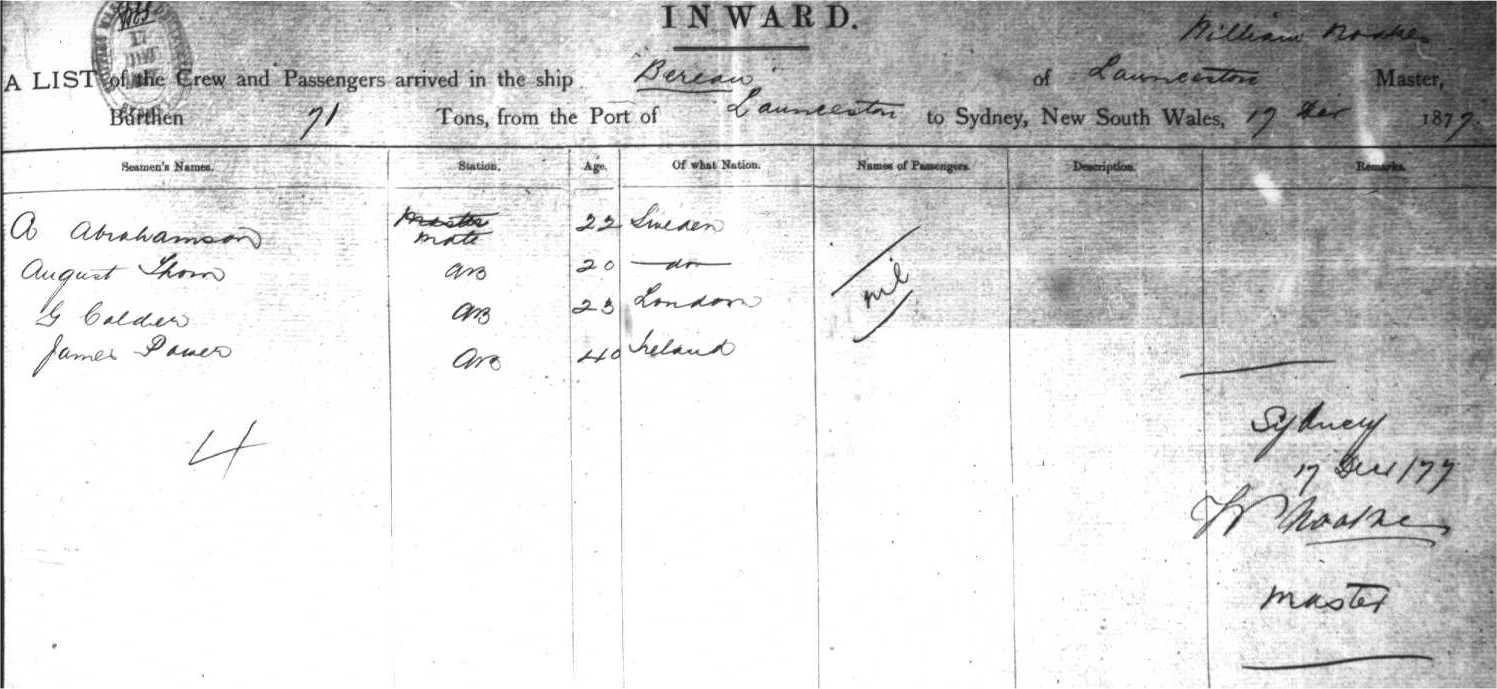 INWARD.
William Noake
A LIST of the Crew and Passengers arrived in the ship "Bereau" of Launceston Master,
Burthen 71 Tons, from the Port of Launceston to Sydney, New South Wales, 17 Dec 1877.
Seamen's Names. Station. Age. Of what Nation. Names of Passengers. Description. Remarks.
A Abrahamson Master Mate 22 Sweden
August Thorn AB 20 do nil
G Calder AB 23 London
James Power AB 40 Ireland
4
Sydney
17 Dec/77
W Noake
Master